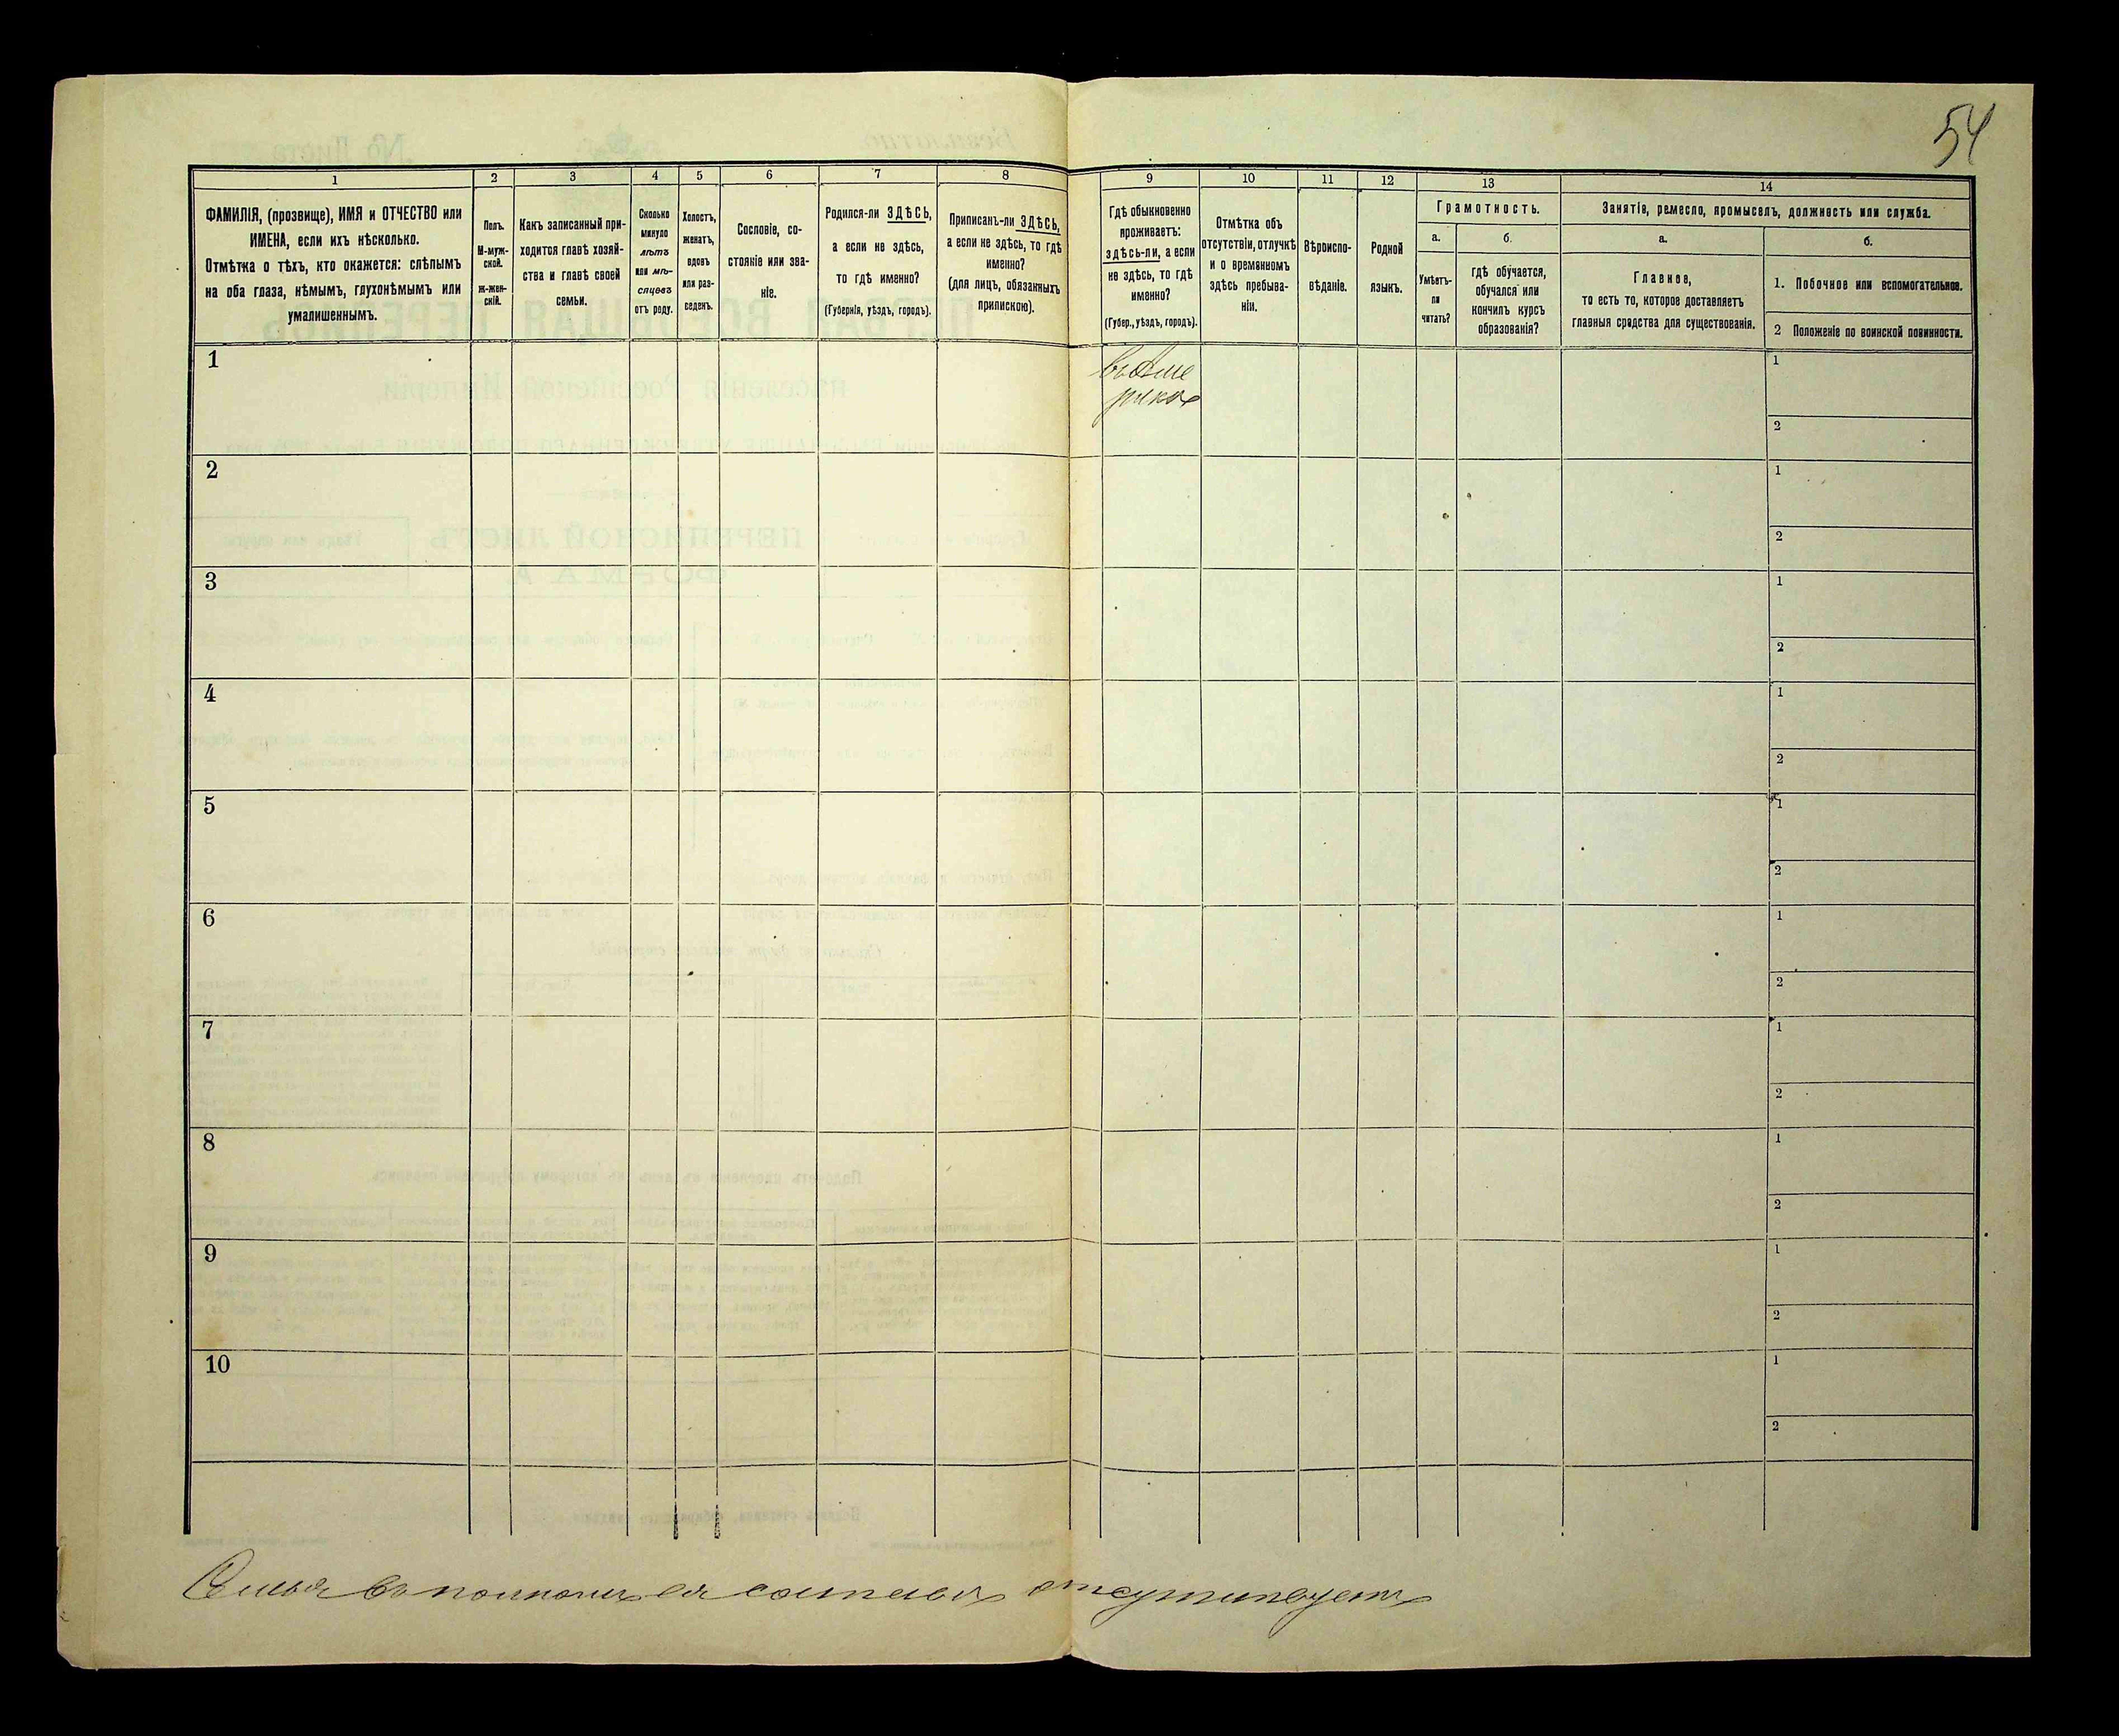 54
1
2
3
4
5
6
7
8
9
10
11
12
13
14
ФАМИЛІЯ, (прозвище), ИМЯ и ОТЧЕСТВО или
ИМЕНА, если ихъ нѣсколько.
Отмѣтка о тѣхъ, кто окажется: слѣпымъ
на оба глаза, нѣмымъ, глухонѣмымъ или
умалишеннымъ.
Полъ.
М-муж-
ской.
Ж-жен-
скій.
Какъ записанный при-
ходится главѣ хозяй-
ства и главѣ своей
семьи.
Сколько
минуло
лѣтъ
или мѣ-
сяцевъ
отъ роду.
Холостъ,
женатъ,
вдовъ
или раз-
веденъ.
Сословіе, со-
стояніе или зва-
ніе.
Родился-ли ЗДѢСЬ,
а если не здѣсь,
то гдѣ именно?
(Губернія, уѣздъ, городъ).
Приписанъ-ли ЗДѢСЬ,
а если не здѣсь, то гдѣ
именно?
(для лицъ, обязанныхъ
припискою).
Гдѣ обыкновенно
проживаетъ:
здѣсь-ли, а если
не здѣсь, то гдѣ
именно?
(Губер., уѣздъ, городъ).
Отмѣтка объ
отсутствіи, отлучкѣ
и о временномъ
здѣсь пребыва-
ніи.
Вѣроиспо-
вѣданіе.
Родной
языкъ.
Грамотность.
а.
Умѣетъ-
ли
читать?
б.
гдѣ обучается,
обучался или
кончилъ курсъ
образованія?
Занятіе, ремесло, промыселъ, должность или служба.
а.
Главное,
то есть то, которое доставляетъ
главныя средства для существованія.
б.
1. Побочное или вспомогательное.
2 Положеніе по воинской повинности.
1
1
2
2
1
2
3
1
2
4
1
2
5
1
2
6
1
2
7
1
2
8
1
2
9
1
2
10
1
2
Семья въ полномъ ея составѣ отсутствуетъ